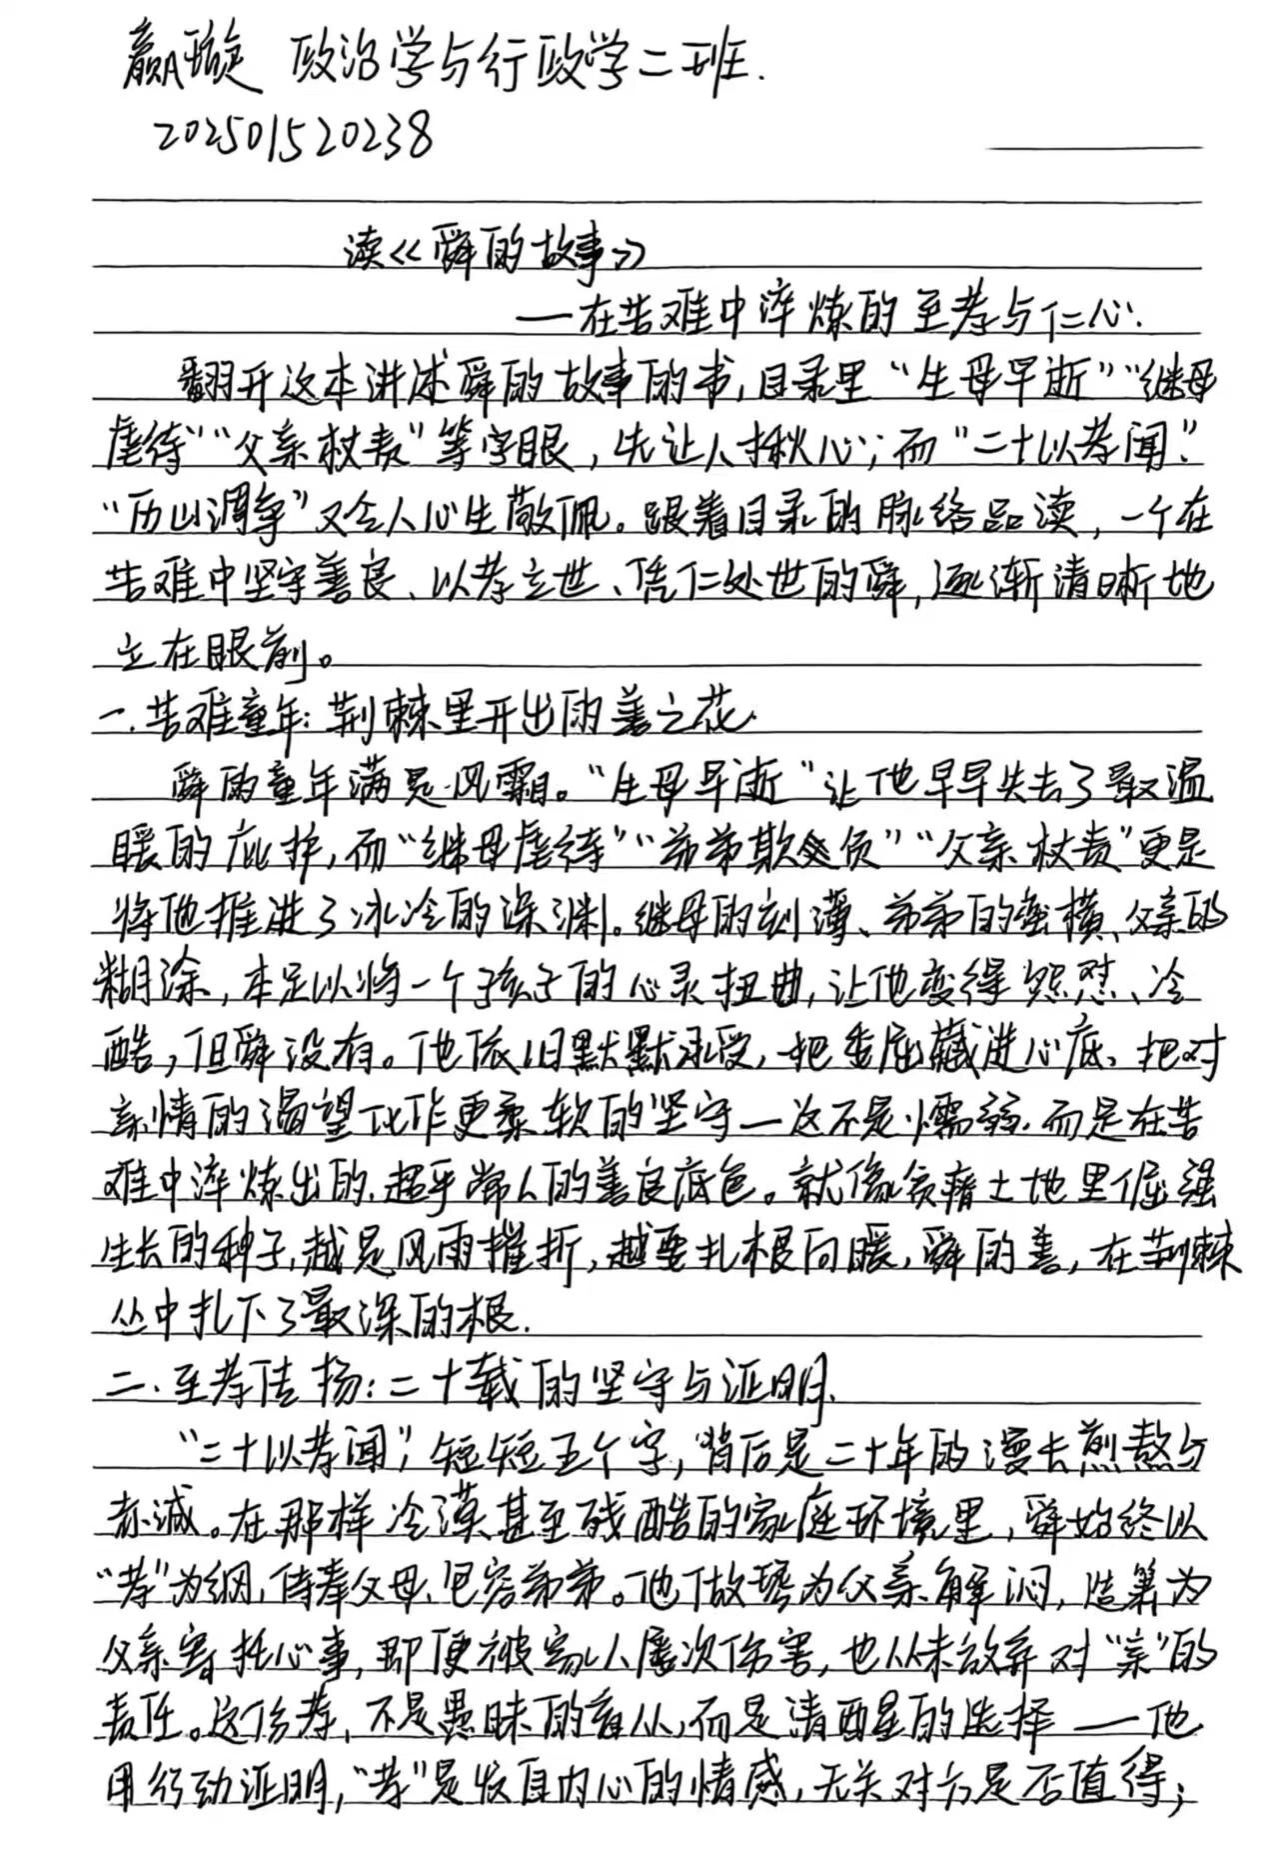 嬴璇 政治学与行政学二班.
202501520238
读《舜的故事》
—在苦难中淬炼的至孝与仁心.
翻开这本讲述舜的故事的书,目录里“生母早逝”“继母
虐待”“父亲杖责”等字眼,先让人揪心;而“二十以孝闻”
“历山调争”又令人心生敬佩。跟着目录的脉络品读,一个在
苦难中坚守善良、以孝立世、凭仁处世的舜,逐渐清晰地
立在眼前。
一.苦难童年:荆棘里开出的善之花.
舜的童年满是风霜。“生母早逝”让他早早失去了最温
暖的庇护,而“继母虐待”“弟弟欺负”“父亲杖责”更是
将他推进了冰冷的深渊。继母的刻薄、弟弟的蛮横、父亲的
糊涂,本足以将一个孩子的心灵扭曲,让他变得怨怼、冷
酷,但舜没有。他依旧默默承受,把委屈藏进心底、把对
亲情的渴望化作更柔软的坚守—这不是懦弱.而是在苦
难中淬炼出的.超乎常人的善良底色。就像贫瘠土地里倔强
生长的种子,越是风雨摧折,越要扎根向暖,舜的善,在荆棘
丛中扎下了最深的根.
二.至孝传扬:二十载的坚守与证明.
“二十以孝闻”,短短五个字,背后是二十年的漫长煎熬与
赤诚。在那样冷漠甚至残酷的家庭环境里,舜始终以
“孝”为纲,侍奉父母.包容弟弟。他做琴为父亲解闷,造箫为
父亲寄托心事,即便被家人屡次伤害,也从未放弃对“亲”的
责任。这份孝,不是愚昧的盲从,而是清醒的选择——他
用行动证明,“孝”是发自内心的情感,无关对方是否值得;